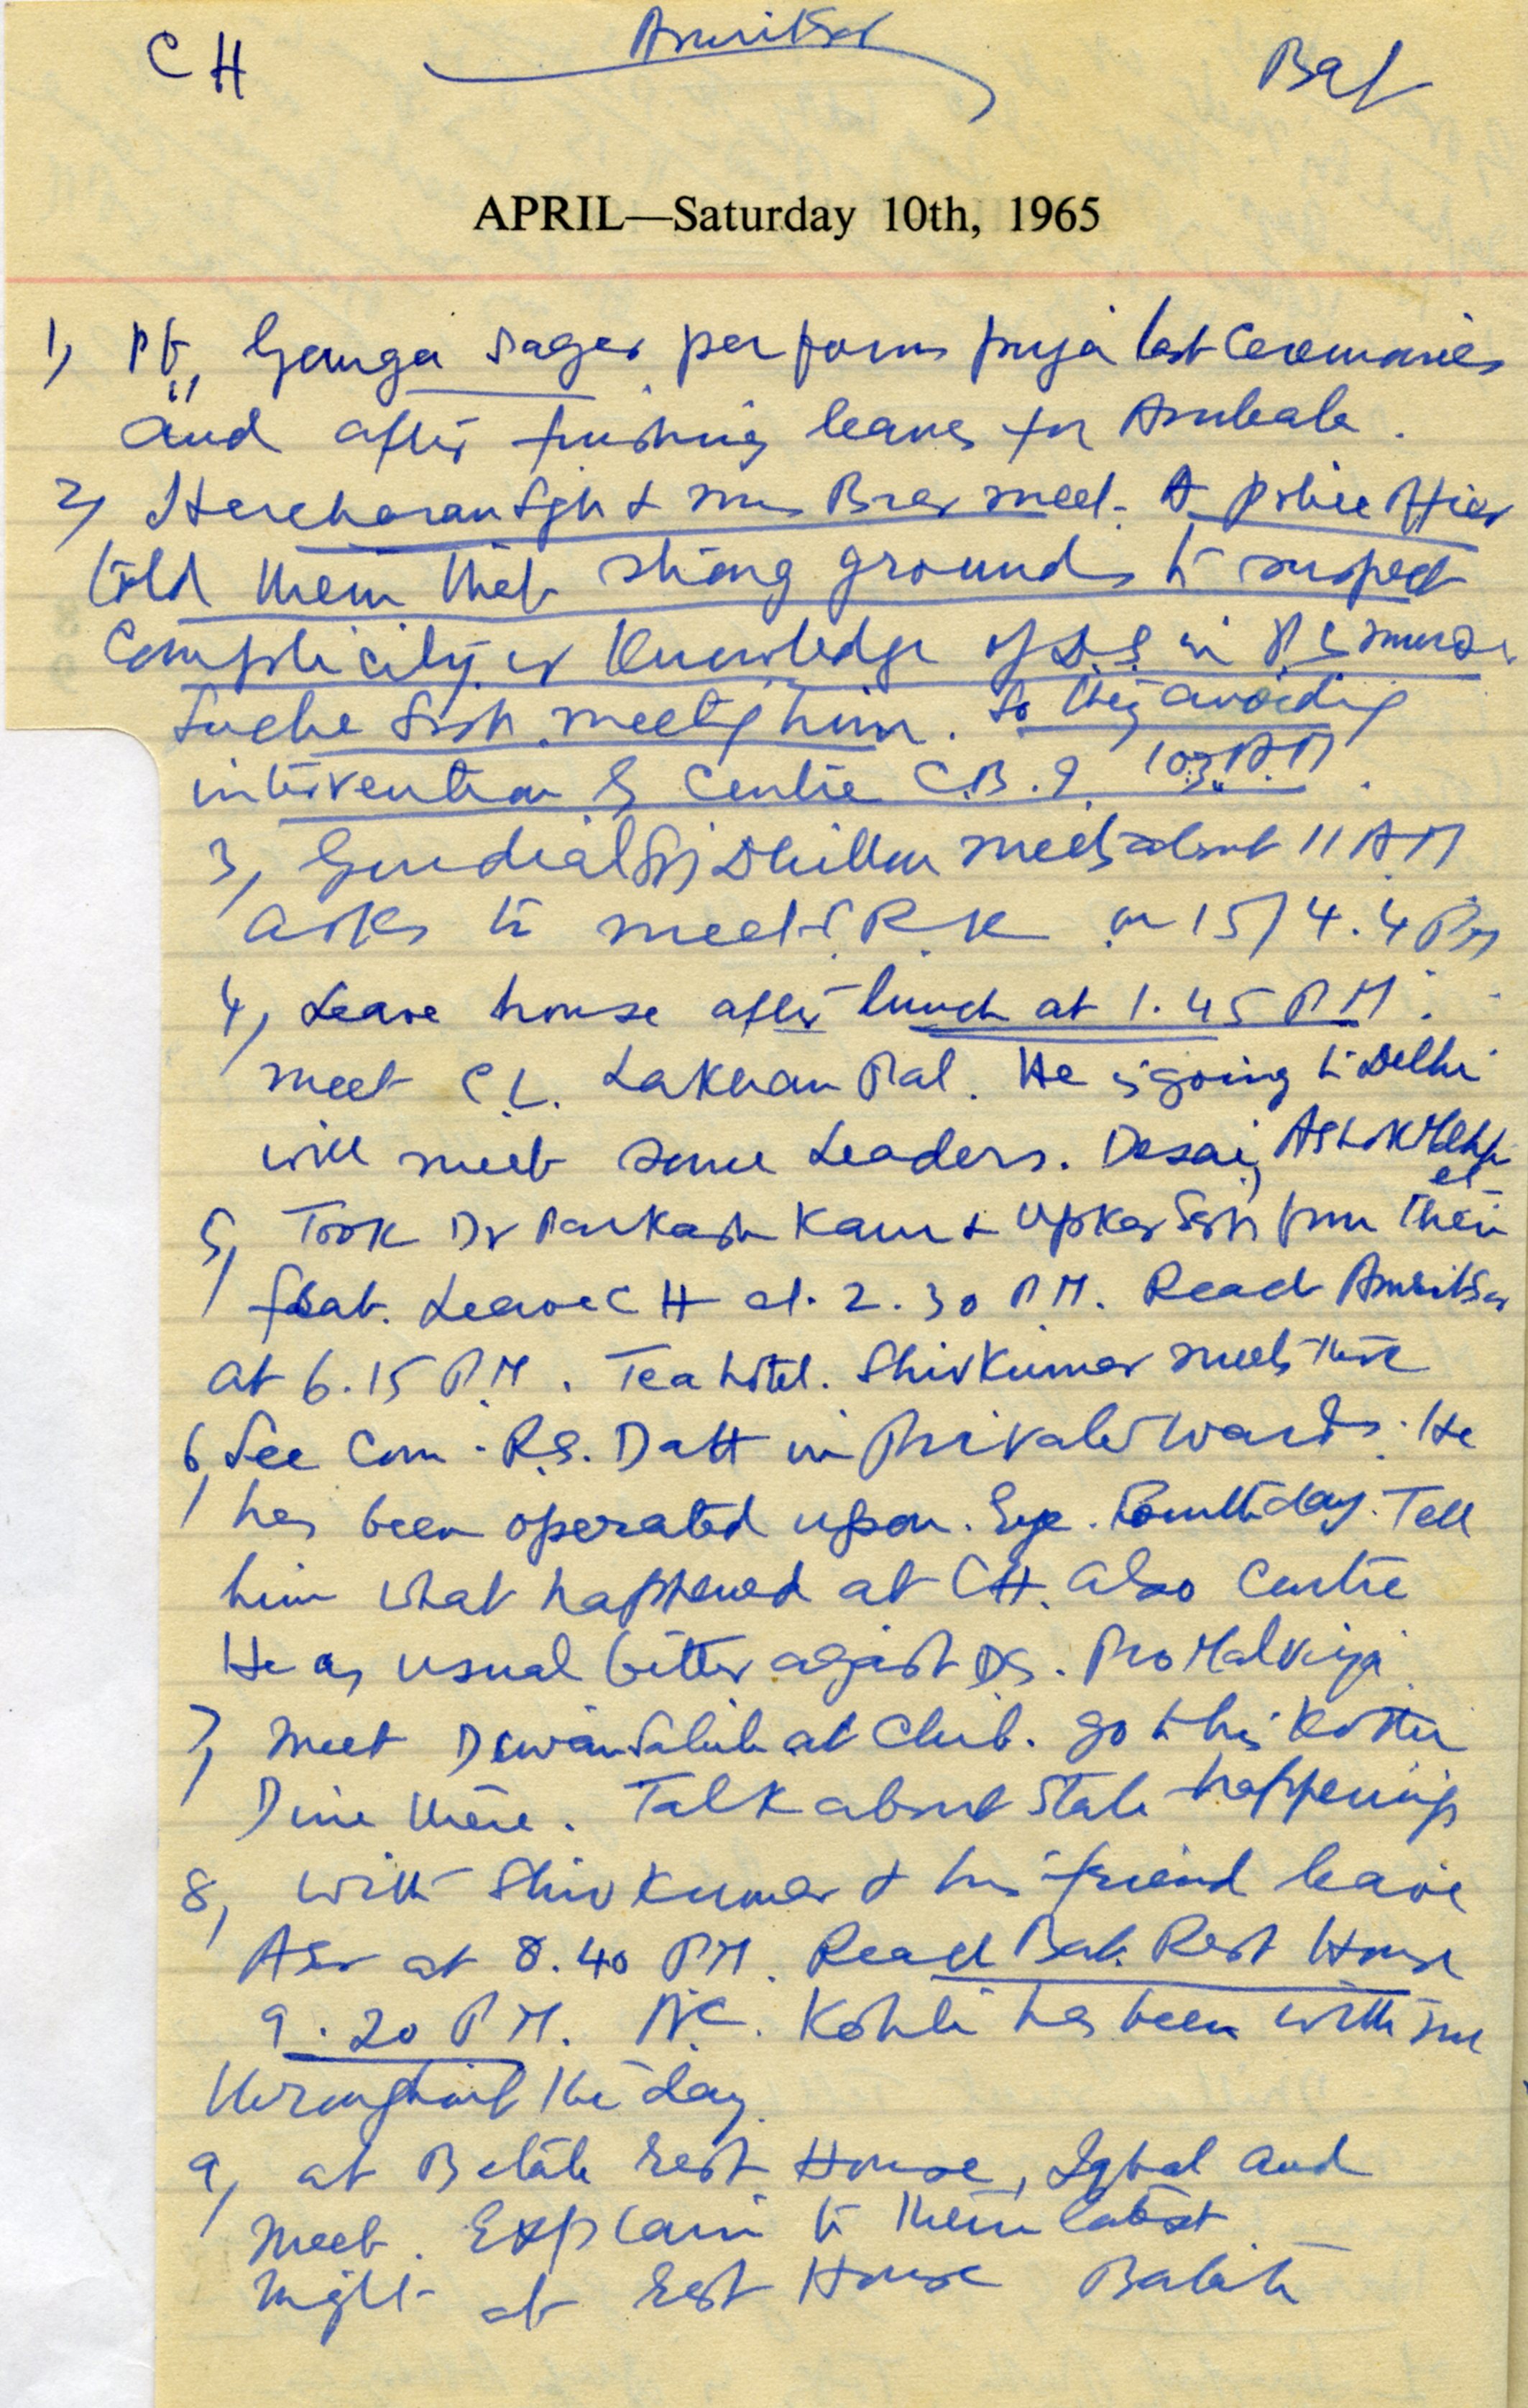 CH Amritsar Bat
APRIL—Saturday 10th, 1965
1, Pt, Ganga Sager performs puja last Ceremonies
and after finishing leaves for Ambala.
2, Harcharan Sgh & Mrs Brar meet. A police officer
told them that strong grounds to suspect
Complicity or Knowledge of D.S. in P.S murder
Sucha Singh meeting him. So they avoiding
intervention of Centre C.B.I. 10.30 A.M.
3, Gurdial Sgh Dhillon meets about 11 AM
asks to meet R.K on 15/4. 4 Pm
4, Leave house after lunch at 1.45 PM.
meet C.L. Lakhan Pal. He is going to Delhi
will meet some Leaders. Desai, Ashok Mehta
etc
5, Took Dr Parkash Kaur & Upkar Sgh from their
flat. Leave CH at 2.30 P.M. Reach Amritsar
at 6.15 P.M. Tea hotel. Shiv Kumar meets there
6, See Com. R.S. Datt in Private Wards. He
has been operated upon. Eye. Fourth day. Tell
him what happened at CH. also Centre
He as usual bitter against DS.
7, meet Dewan Sahib at Club. go to his Kothi
Dine there. Talk about State happenings
8, with Shiv Kumar & his friend leave
ASr at 8.40 P.M. Reach Bat. Rest House
9.20 P.M. N.C. Kohli has been with me
throughout the day.
9, at Batala Rest House, Iqbal and
meet. Explain to them latest
Night at Rest House Batala